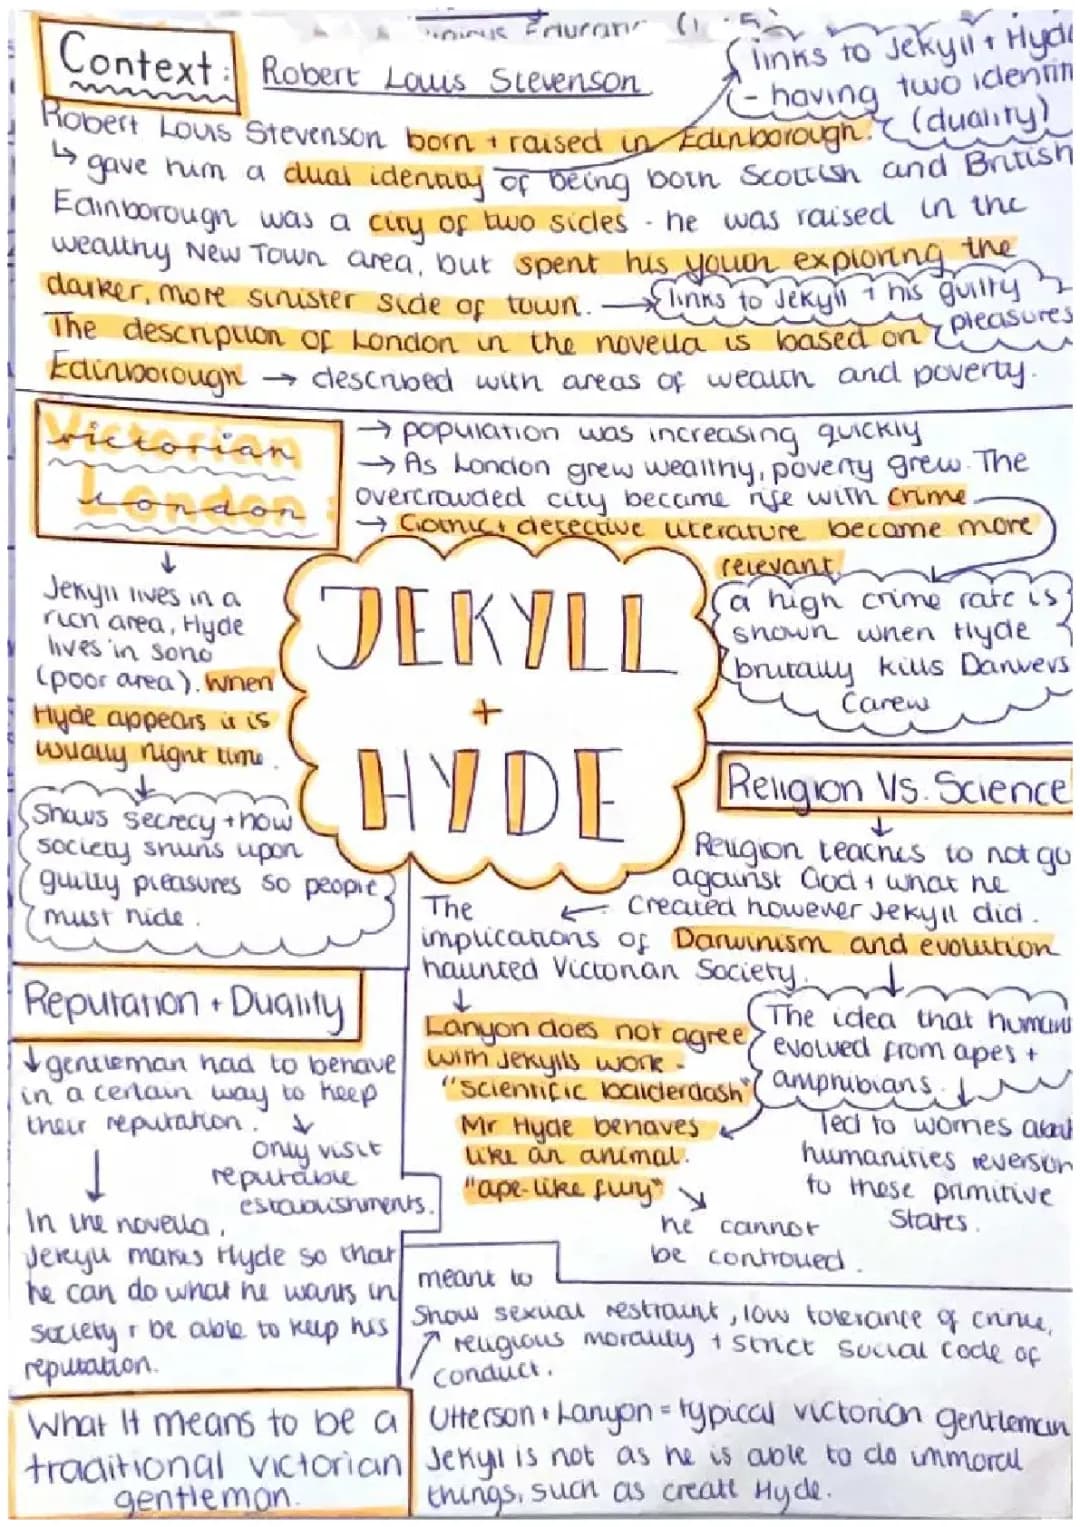 Context:
Robert Louis Stevenson
links to Jekyll + Hyde
- having two identiti
(duality)
Robert Louis Stevenson born + raised in Edinborough.
↳ gave him a dual identity of being both Scottish and British
Edinborough was a city of two sides - he was raised in the
wealthy New Town area, but spent his youth exploring the
darker, more sinister side of town. →
links to Jekyll + his guilty
pleasures
The description of London in the novella is based on
Edinborough → described with areas of wealth and poverty.
Victorian
London:
→ population was increasing quickly
→ As London grew wealthy, poverty grew. The
overcrowded city became rife with crime.
→ Gothic + detective literature became more
relevant.
a high crime rate is
shown when Hyde
brutally kills Danvers
Carew
Jekyll lives in a
rich area, Hyde
lives in soho
(poor area). When
Hyde appears it is
usually night time.
Shows secrecy + how
society shuns upon
guilty pleasures so people
must hide.
JEKYLL
+
HYDE
Religion Vs. Science
Religion teaches to not go
against God + what he
created however Jekyll did.
The
implications of Darwinism and evolution
haunted Victorian Society.
Lanyon does not agree
with Jekylls work -
"scientific balderdash"
The idea that humans
evolved from apes +
amphibians.
led to worries about
humanities reversion
to these primitive
states.
Mr Hyde behaves
like an animal.
"ape-like fury"
he cannot
be controlled.
Reputation + Duality
↓ gentleman had to behave
in a certain way to keep
their reputation.
only visit
reputable
establishments.
In the novella,
Jekyll makes Hyde so that
he can do what he wants in
society + be able to keep his
reputation.
What it means to be a
traditional victorian
gentleman.
meant to
show sexual restraint, low tolerance of crime,
religious morality + strict social code of
conduct.
Utterson + Lanyon = typical victorian gentleman
Jekyl is not as he is able to do immoral
things, such as creatt Hyde.